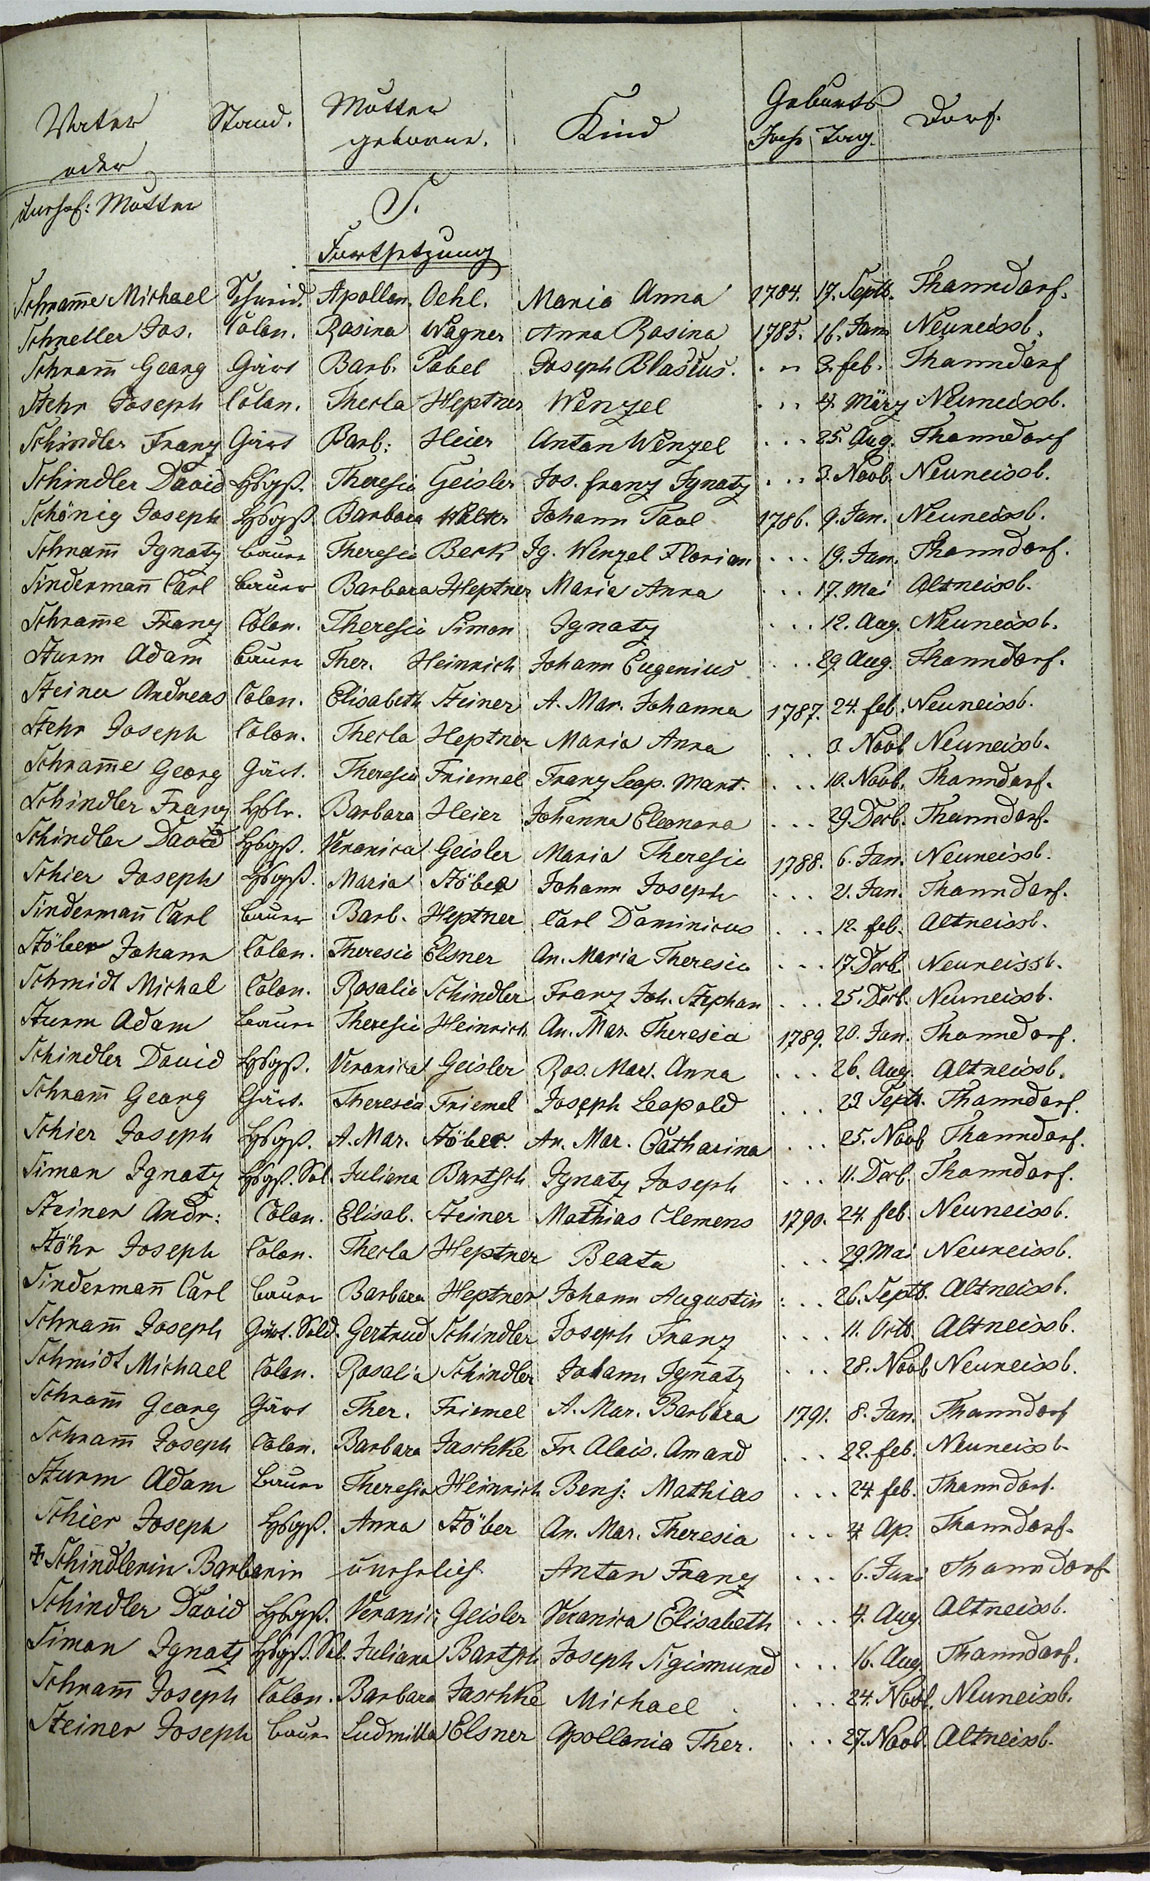 Vater Stand. Mutter Kind Geburts Dorf.
oder geborne. Jahr Tag.
unehel: Mutter S.
Fortsetzung
Schram̄e Michael Schmid. Apollon. Oehl. Maria Anna 1784. 17. Septb. Thanndorf.
Schneller Jos. Colon. Rosina Wagner Anna Rosina 1785. 16. Jan Neuneissb.
Schram̄ Georg Gärt Barb. Pabel Joseph Blasius. . . . 3. feb. Thanndorf
Stehr Joseph Colon. Thecla Heptner Wenzel . . . 4. März Neuneissb.
Schindler Franz Gärt Barb: Heier Anton Wenzel . . . 25. Aug. Thanndorf
Schindler David Hsgß. Theresia Geisler Jos. franz Ignatz . . . 3. Novb. Neuneissb.
Schönig Joseph Hsgß. Barbara Walter Johann Paul 1786. 9. Jan. Neuneissb.
Schram̄ Ignatz bauer Theresia Berk Ig. Wenzel Florian . . . 19. Jan. Thanndorf.
Sinderman̄ Carl bauer Barbara Heptner Maria Anna . . . 17. Mai Altneissb.
Schram̄e Franz Colon. Theresia Simon Ignatz . . . 12. Aug. Neuneissb.
Sturm Adam bauer Ther. Heinrich Johann Eugenius . . . 29. Aug. Thanndorf.
Steiner Andreas Colon. Elisabeth Steiner A. Mar. Johanna 1787. 24. feb. Neuneissb.
Stehr Joseph Colon. Thecla Heptner Maria Anna . . . 3. Novb Neuneissb.
Schram̄e Georg Gärt. Theresia Friemel Franz Leop. Mart. . . . 10. Novb. Thanndorf.
Schindler Franz Hslr. Barbara Heier Johanna Eleonora . . . 29. Decb. Thanndorf.
Schindler David Hsgß. Veronica Geisler Maria Theresia 1788. 6. Jan. Neuneissb.
Schier Joseph Hsgß. Maria Stöber Johann Joseph . . . 21. Jan. Thanndorf.
Sinderman̄ Carl bauer Barb. Heptner Carl Dominicus . . . 12. feb. Altneissb.
Stöber Johann Colon. Theresia Elsner An. Maria Theresia . . . 17. Decb Neuneissb.
Schmidt Michal Colon. Rosalia Schindler Franz Joh. Stephan . . . 25. Decb. Neuneissb.
Sturm Adam bauer Theresia Heinrich An. Mar. Theresia 1789. 20. Jan. Thanndorf.
Schindler David Hsgß. Veronica Geisler Ros. Mar. Anna . . . 26. Aug. Altneissb.
Schram̄ Georg Gärt. Theresia Friemel Joseph Leopold . . . 23. Septb. Thanndorf.
Schier Joseph Hsgß. A. Mar. Stöber. An. Mar. Catharina . . . 25. Novb Thanndorf.
Simon Ignatz Hsgß. Sol. Juliana Bartsch Ignatz Joseph . . . 11. Decb. Thanndorf.
Steiner Andr: Colon. Elisab. Steiner Mathias Clemens 1790. 24. feb. Neuneissb.
Stöhr Joseph Colon. Thecla Heptner Beata . . . 29. Mai Neuneissb.
Sinderman̄ Carl bauer Barbara Heptner Johann Augustin . . . 26. Septb. Altneissb.
Schram̄ Joseph Gärt. Sold. Gertrud Schindler Joseph Franz . . . 11. Octb Altneissb.
Schmidt Michael Colon. Rosalia Schindler Johann Ignatz . . . 28. Novb Neuneissb.
Schram̄ Georg Gärt Ther. Friemel A. Mar. Barbara 1791. 8. Jan. Thanndorf
Schram̄ Joseph Colon. Barbara Jaschke Fr. Alois. Amand . . . 22. feb. Neuneissb
Sturm Adam bauer Theresia Heinrich Benj: Mathias . . . 24 feb. Thanndorf.
Schier Joseph Hsgß. Anna Stöber An. Mar. Theresia . . . 4 Ap. Thanndorf.
Schindlerin Barbarin unehelich Anton Franz . . . 6. Juni Thanndorf
Schindler David Hsgß. Veronic: Geisler Veronica Elisabeth . . . 4. Aug Altneissb.
Simon Ignatz Hsgß. Sol. Juliana Bartsch Joseph Sigismund . . . 16. Aug Thanndorf.
Schram̄ Joseph Colon. Barbara Jaschke Michael . . . 24. Novb. Neuneissb.
Steiner Joseph bauer Ludmilla Elsner Apollonia Ther. . . . 27. Novb. Altneissb.